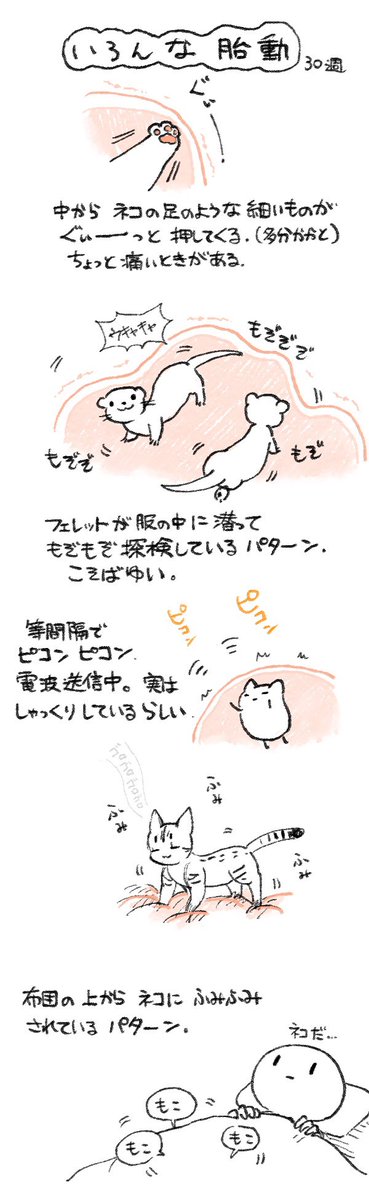 いろんな 胎動
30週
ぐぃー
中から ネコの足のような 細いものが
ぐぃーーっと 押してくる。(多分かかと)
ちょっと 痛いときがある。
ウキャキャ
もぞぞぞ
もぞぞ
もぞ
フェレットが 服の中に 潜って
もぞもぞ 探検している パターン.
こそばゆい。
ピクッ
ピクッ
等間隔で
ピコン ピコン.
電波送信中。実は
しゃっくりしているらしい.
ふみ
ふみ
ふみ
布団の 上から ネコに ふみふみ
されている パターン。
ネコだ…
もこ
もこ
もこ